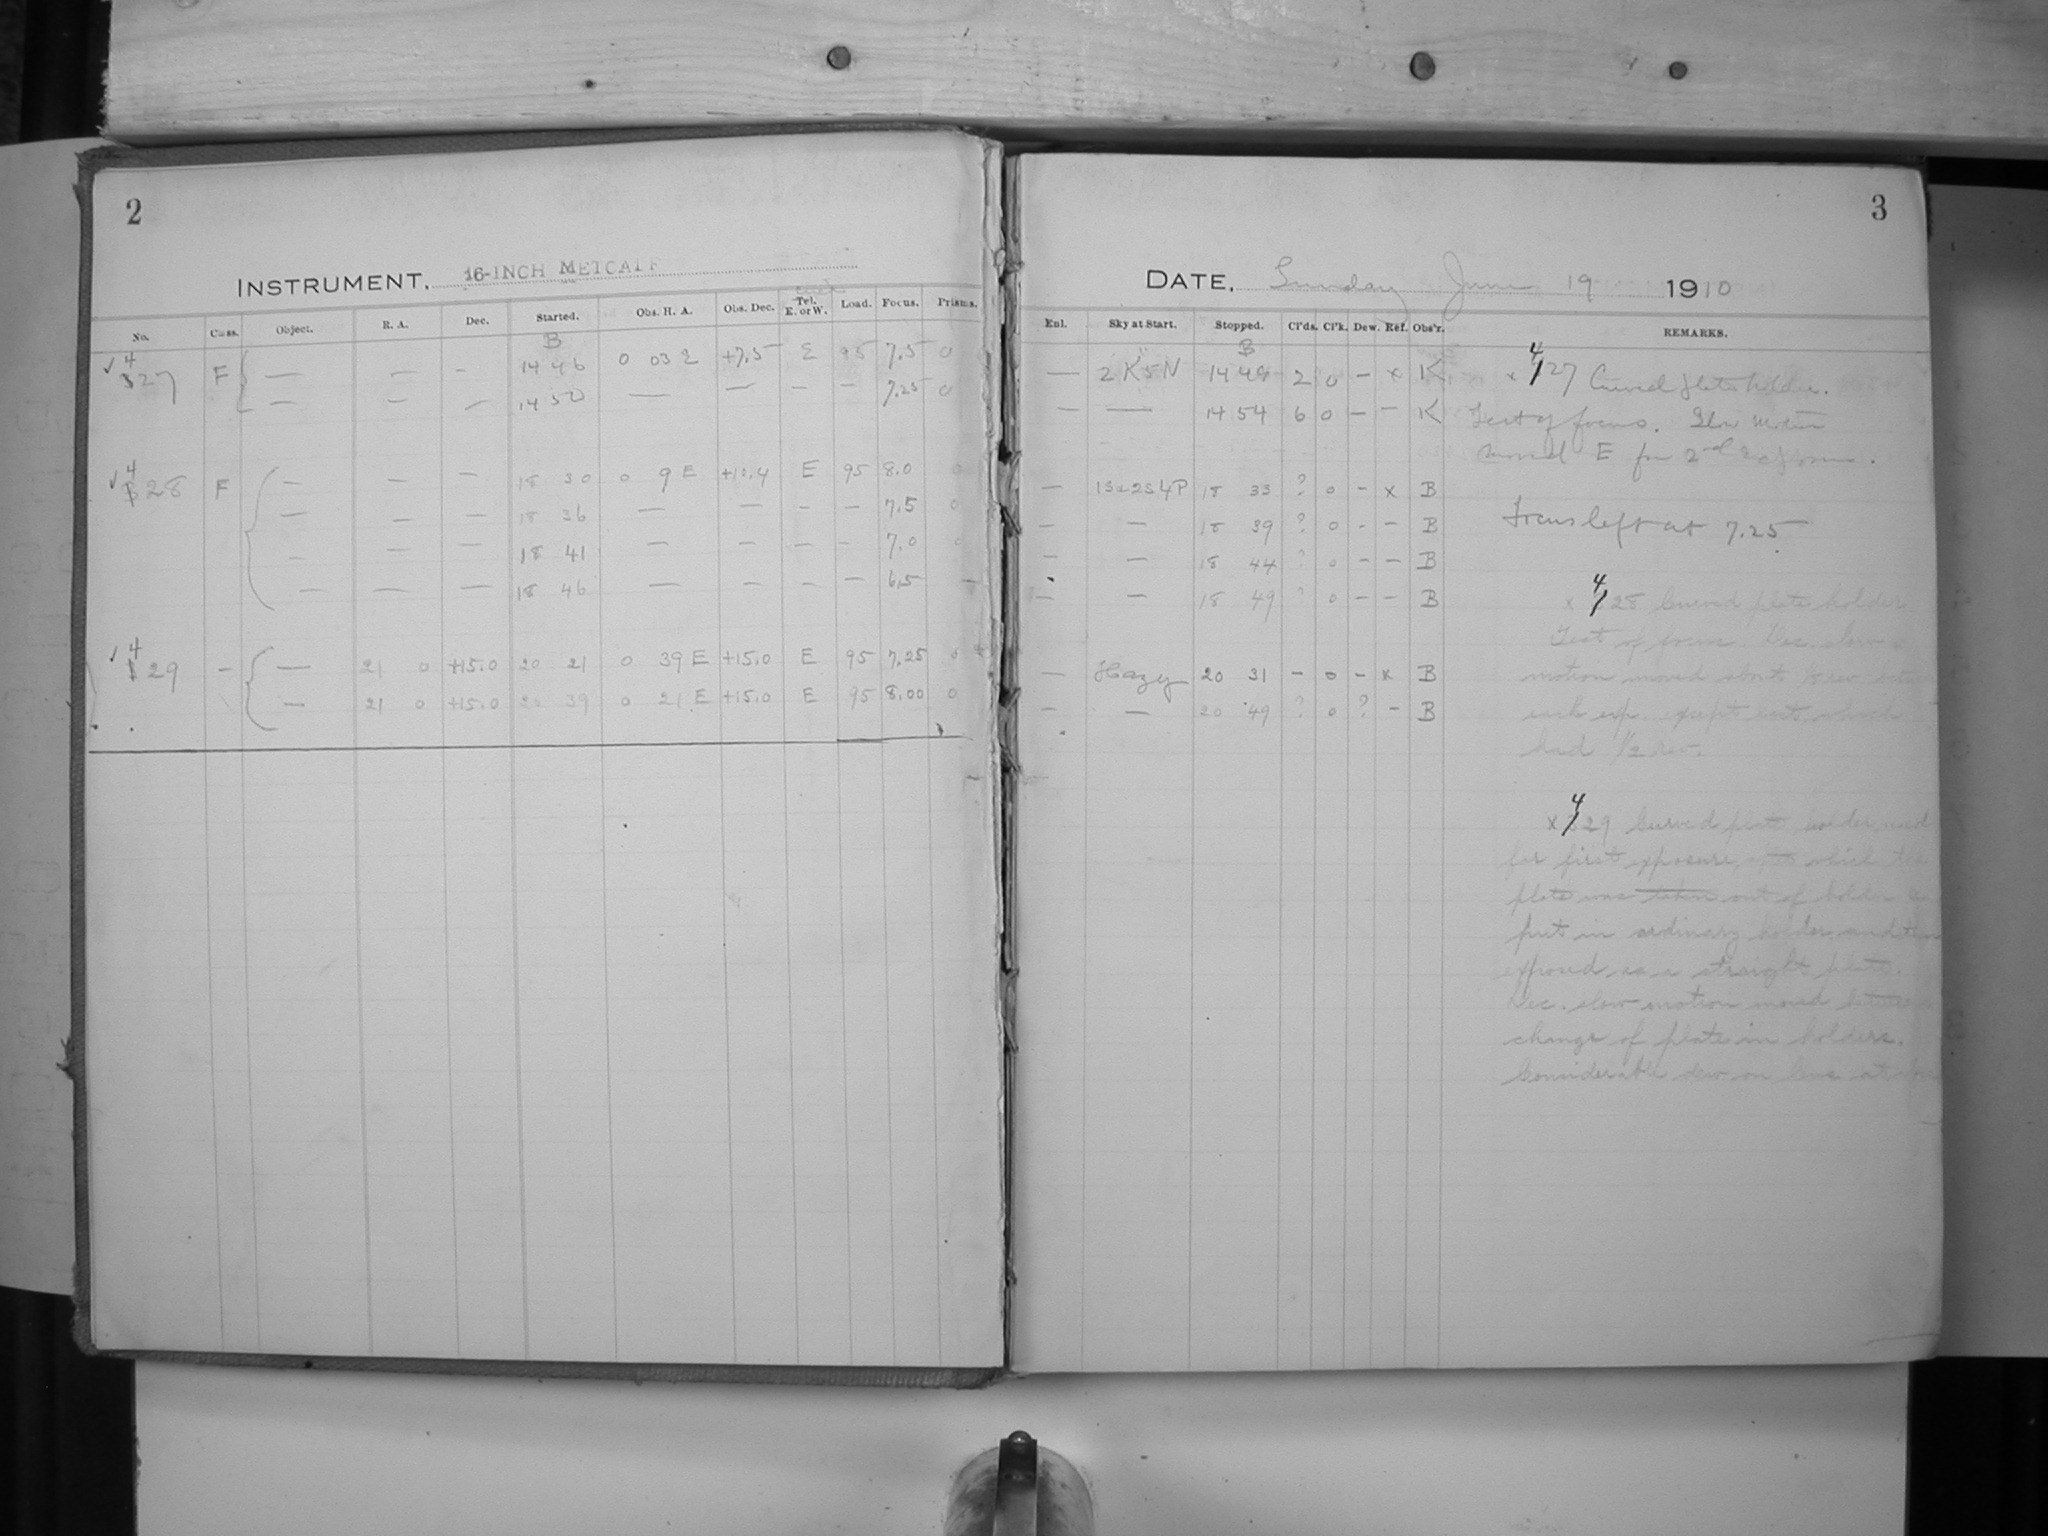 2
INSTRUMENT. 16-INCH METCALF
No. Class. Object. R. A. Dec. Started. Obs. H. A. Obs. Dec. Tel. E. or W. Load. Focus. Prisms.
B
✓ 4 27 F — — - 14 46 0 03 +7.5 E 95 7.5 0
— — — 14 50 — — — — 7.25 0
✓ 4 28 F — — — 18 30 0 9 E +10.4 E 95 8.0 0
— — — 18 36 — — - — 7.5 0
- — — 18 41 — — — — 7.0
— — — 18 46 — — — — 6.5 —
✓ 4 29 — — 21 0 +15.0 20 21 0 39 E +15.0 E 95 7.25 0
— 21 0 +15.0 20 39 0 21 E +15.0 E 95 8.00 0
3
DATE, Sunday June 19 1910
Enl. Sky at Start. Stopped. Cl'ds. Cl'k. Dew. Ref. Obs'r. REMARKS.
B
— 2 K 5 N 14 48 2 0 - x K
— — 14 54 6 0 - - K
— 1S+2S4P 18 33 ? 0 - x B
— — 18 39 ? 0 - - B
— — 18 44 ? 0 - - B
— — 18 49 ? 0 - - B
— Hazy 20 31 - 0 - x B
— — 20 49 ? 0 ? - B
x 4 27 Curved plate holder.
Test of focus. Slow motion
moved E for 2nd
Focus left at 7.25
x 4 28 Curved plate holder
Test of focus Dec. slow
motion moved about rev.
each exp. except last which
had 1/2 rev.
x 4 29 Curved plate holder used
for first exposure which the
plate was taken out of holder &
put in ordinary holder and then
exposed as a straight plate.
Dec. slow motion moved between
change of plate in holders.
Considerable dew on lens at